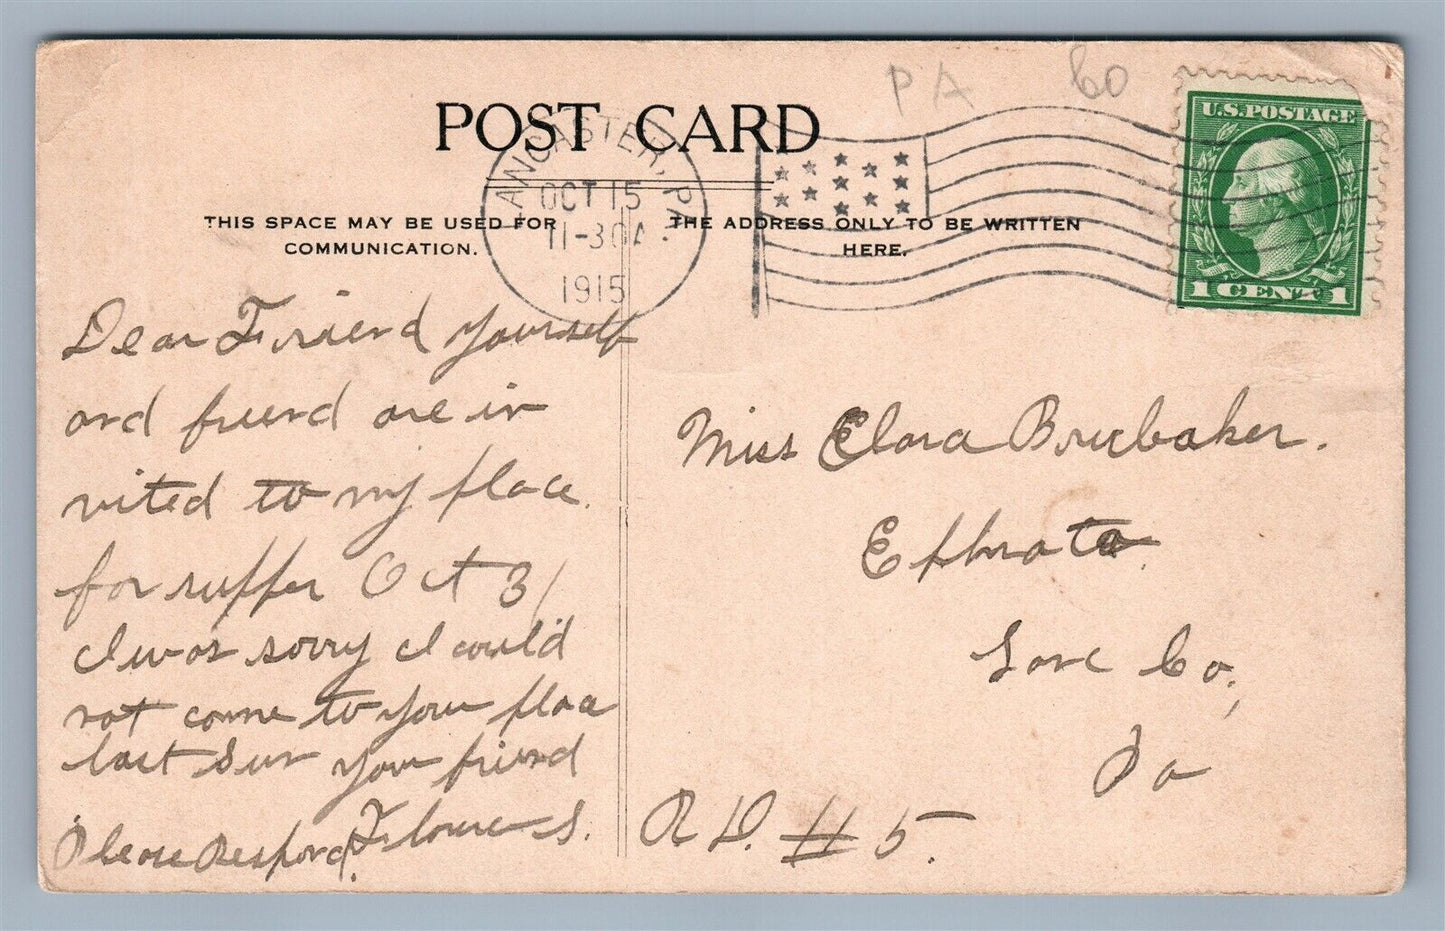 PA 60
POST CARD
LANCASTER, PA.
OCT 15
11-30A.
1915
U.S. POSTAGE
1 CENT 1
THIS SPACE MAY BE USED FOR
COMMUNICATION.
THE ADDRESS ONLY TO BE WRITTEN
HERE.
Dear Friend Yourself
and friend are in
vited to my place.
for supper Oct 31
I was sorry I could
not come to your place
last Sun your friend
Please Respond. Florence S.
Miss Clara Brubaker.
Ephrata.
Lanc Co.,
Pa
R D. # 5.